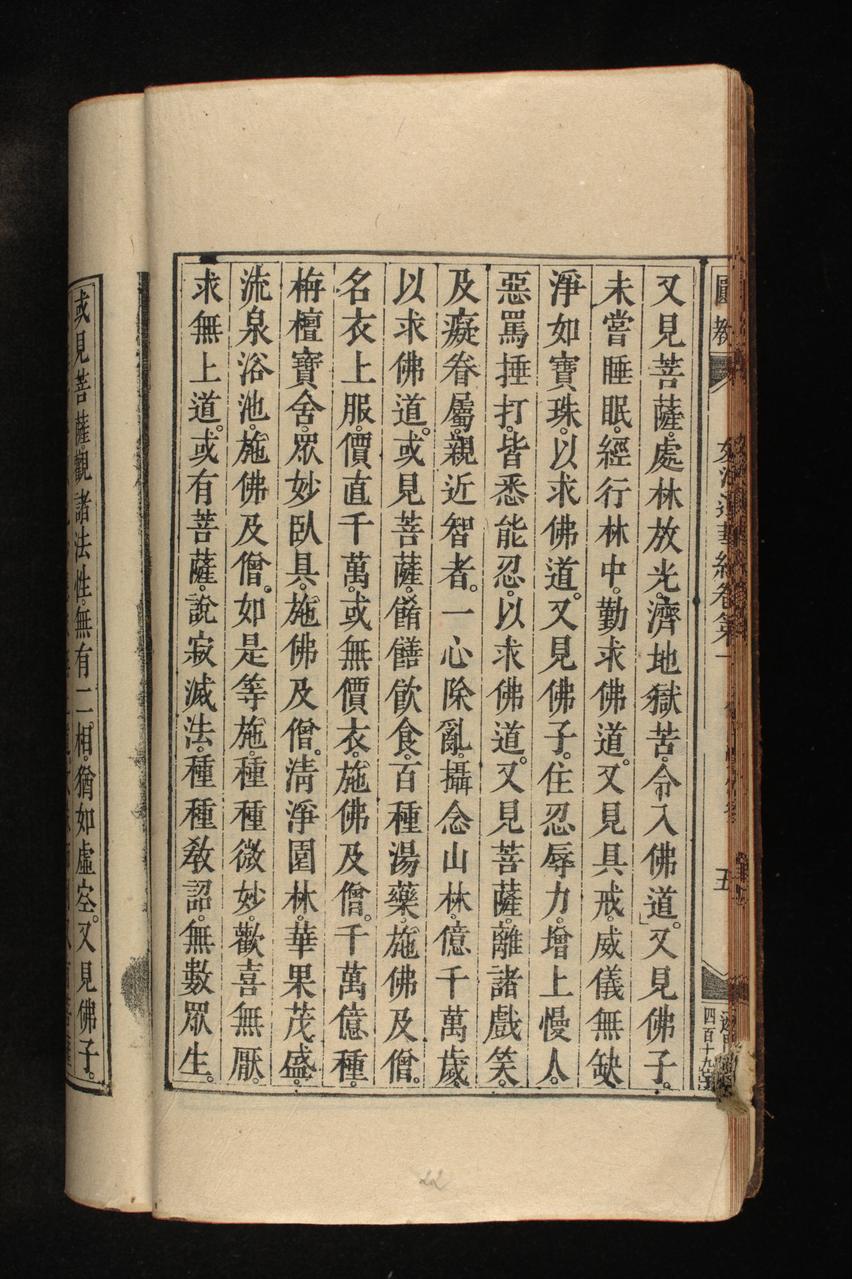 又見菩薩。處林放光。濟地獄苦。令入佛道。」又見佛子。
未嘗睡眠。經行林中。勤求佛道。又見具戒。威儀無缺
淨如寶珠。以求佛道。又見佛子。住忍辱力。增上慢人。
惡罵捶打。皆悉能忍。以求佛道。又見菩薩。離諸戲笑。
及癡眷屬。親近智者。一心除亂。攝念山林。億千萬歲。
以求佛道。或見菩薩。餚饍飲食。百種湯藥。施佛及僧。
名衣上服。價直千萬。或無價衣。施佛及僧。千萬億種。
栴檀寶舍。眾妙臥具。施佛及僧。清淨園林。華果茂盛。
流泉浴池。施佛及僧。如是等施。種種微妙。歡喜無厭。
求無上道。或有菩薩。說寂滅法。種種教詔。無數眾生。
或見菩薩。觀諸法性。無有二相。猶如虛空。又見佛子。